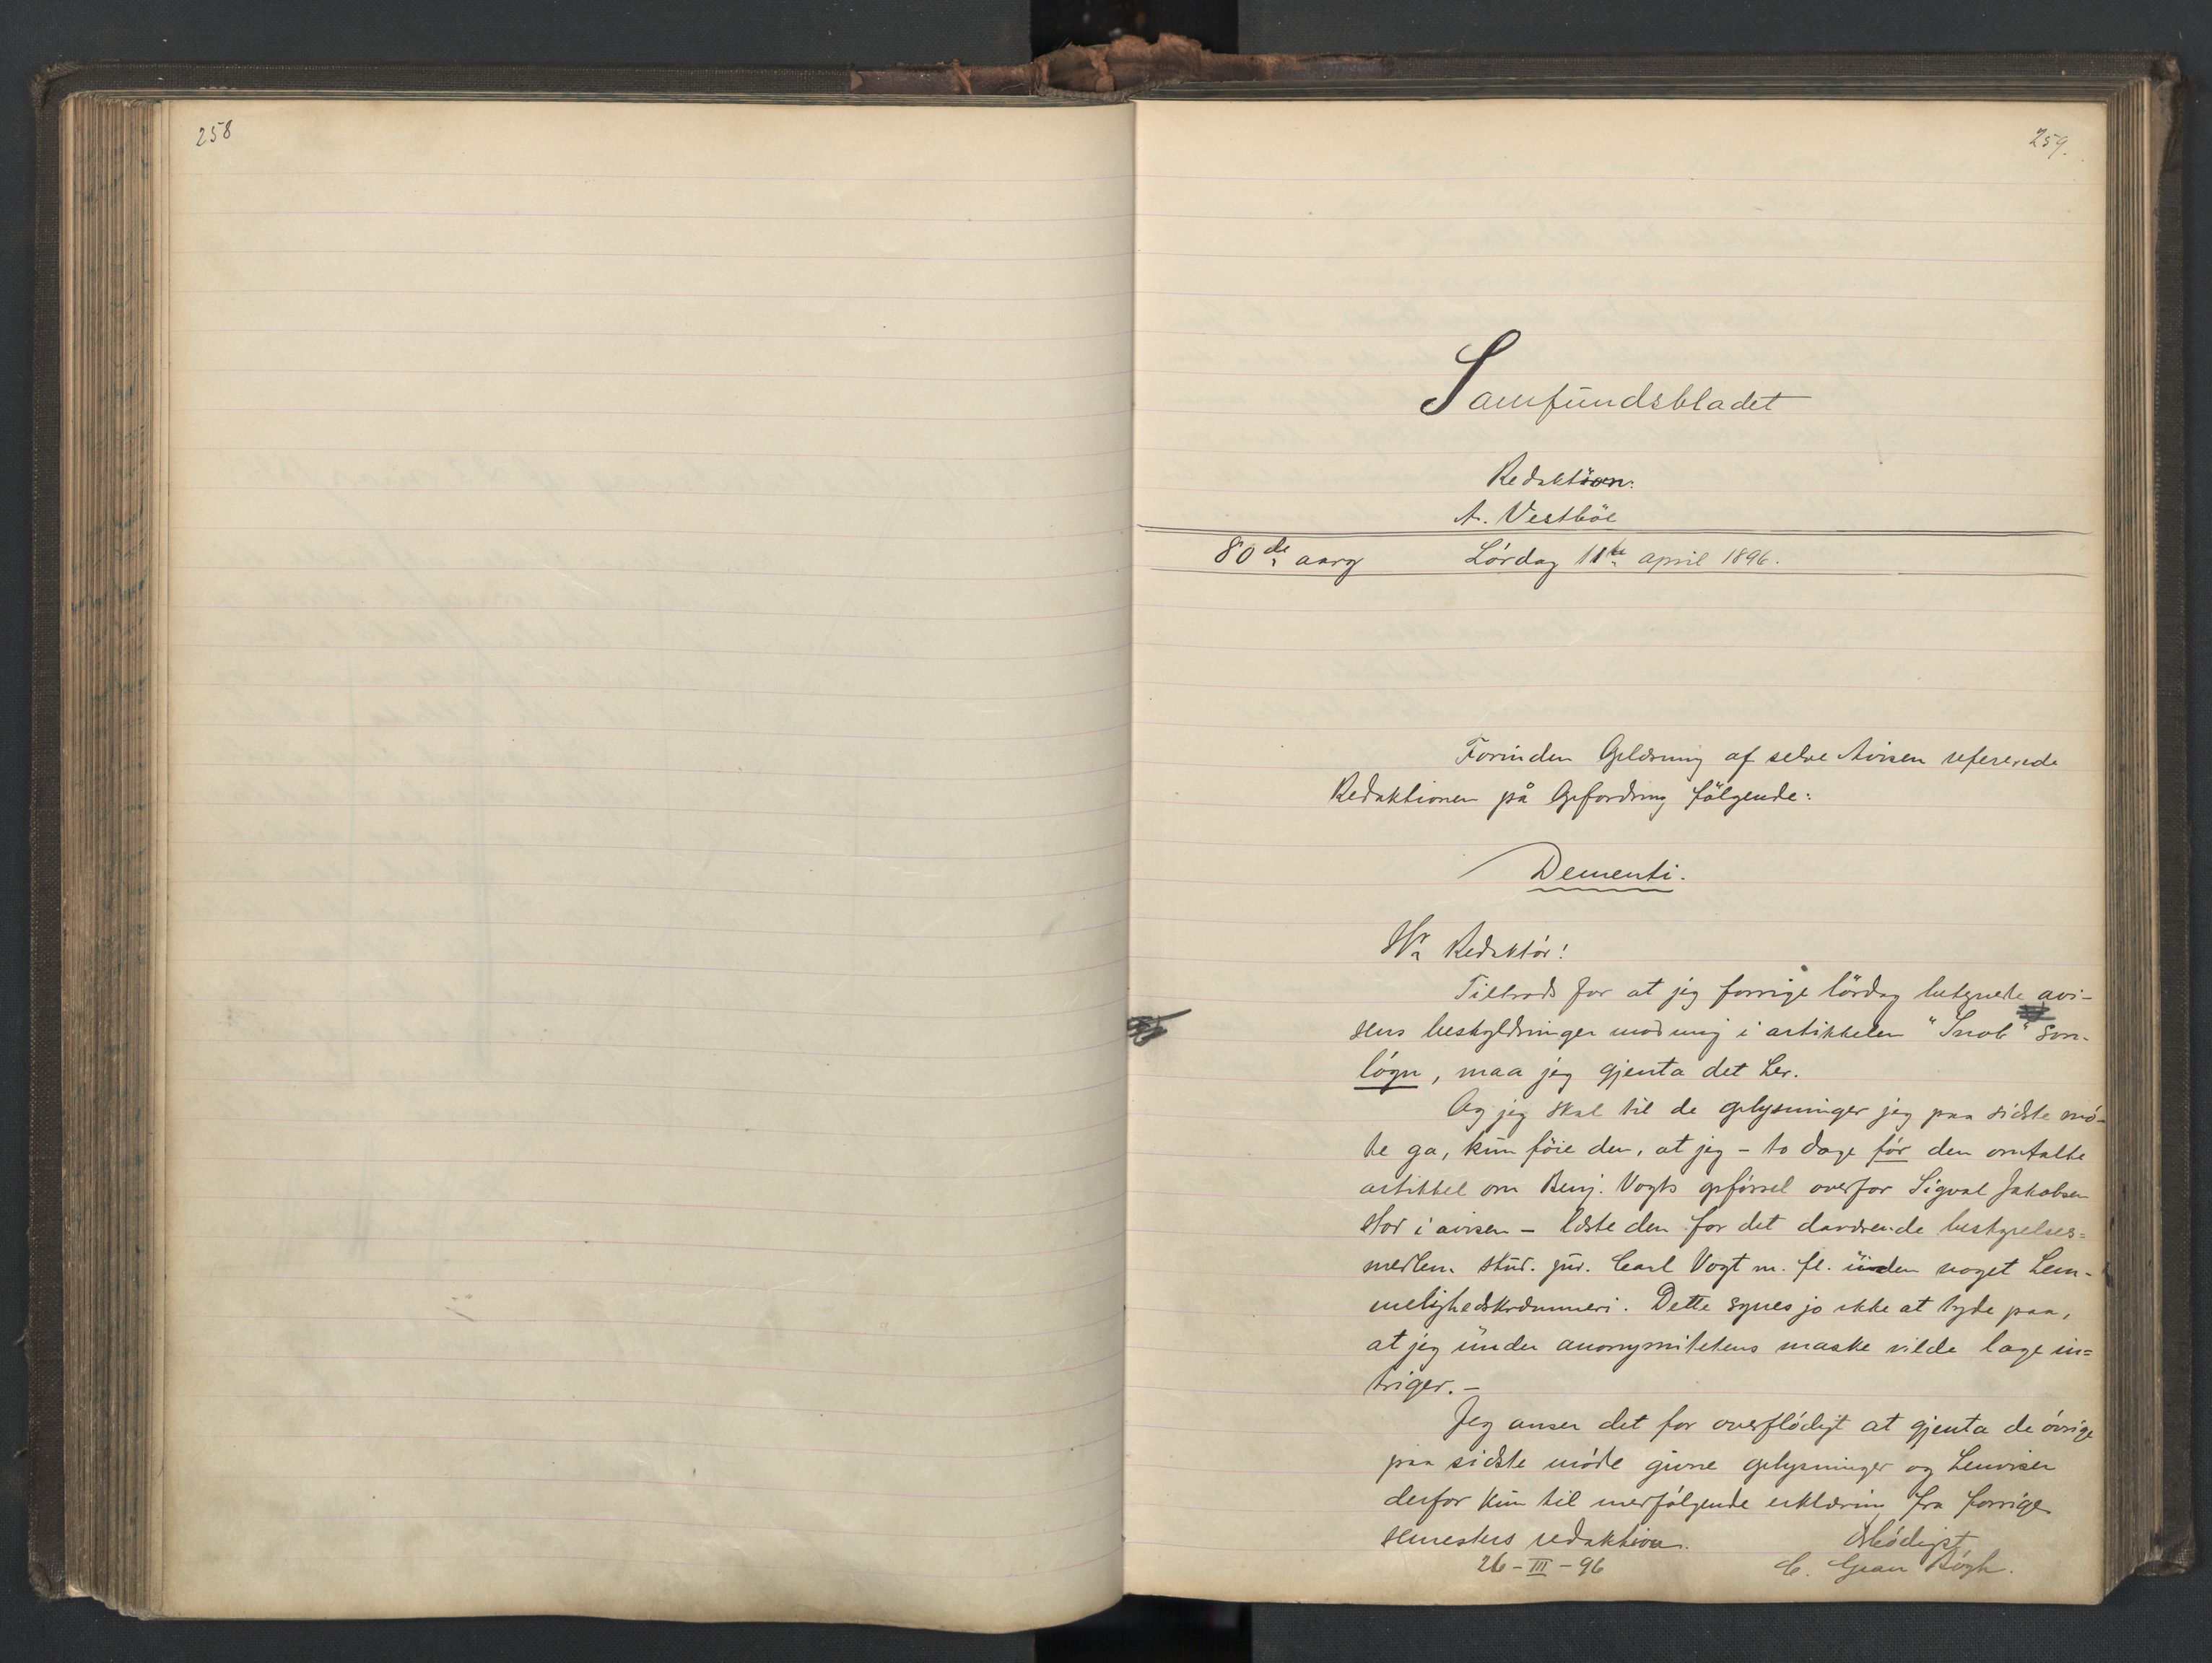 258
259.
Samfundsbladet
Redaktören:
A. Vestböe
80de aarg Lördag 11te april 1896.
Forinden Oplæsning af selve Avisen refererede
Redaktionen på Opfordring fölgende:
Dementi.
Hr. Redaktör!
Tiltrods for at jeg forrige lördag betegnede avi-
sens beskyldninger mod mig i artikkelen "Snob" som
lögn, maa jeg gjenta det her.
Og jeg skal til de oplysninger jeg paa sidste mö-
te ga, kun föie den, at jeg – to dage för den omtalte
artikkel om Benj. Vogts opförsel overfor Sigval Jakobsen
stod i avisen – læste den for det daværende bestyrelses=
medlem stud. jur. Carl Vogt m. fl. uden noget hem-
melighedskræmmeri. Dette synes jo ikke at tyde paa,
at jeg under anonymitetens maske vilde lage in=
triger. –
Jeg anser det for overflödigt at gjenta de övrige
paa sidste möde givne oplysninger og henviser
derfor kun til medfölgende erklæring fra forrige
semesters redaktion.
Ærbödigst
26 – III – 96
C. Gran Bögh.